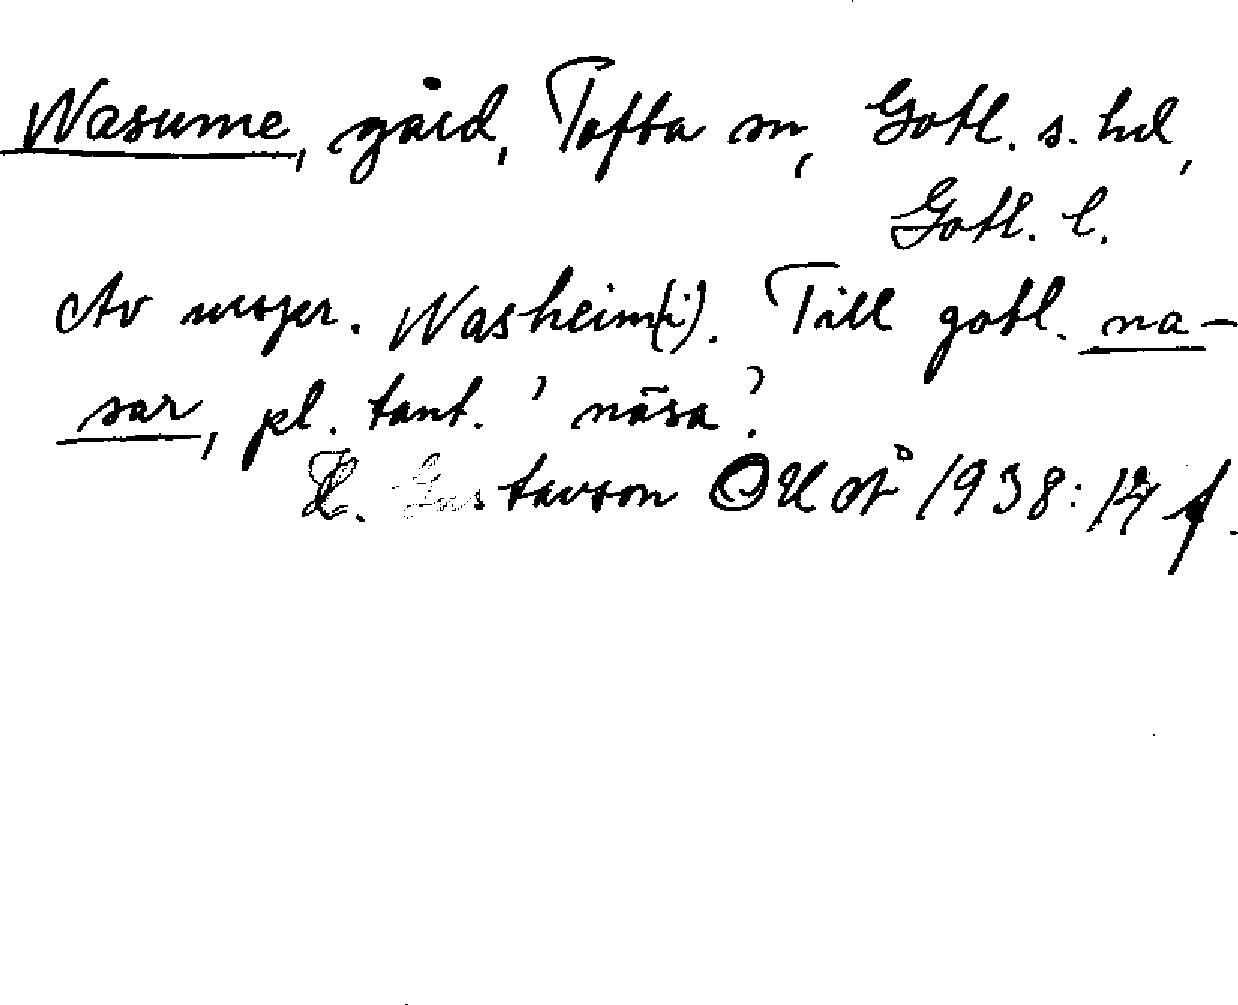 Nasume, gård, Tofta sn, Gotl. s. hd,
Gotl. l.
Av urspr. Nasheim(i). Till gotl. na-
sar, pl. tant. 'näsa'.
H. Gustavson OUÅ 1938: f.